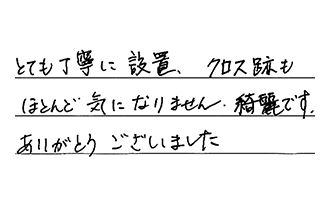 とても丁寧に設置、クロス跡も
ほとんど気になりません。綺麗です。
ありがとうございました